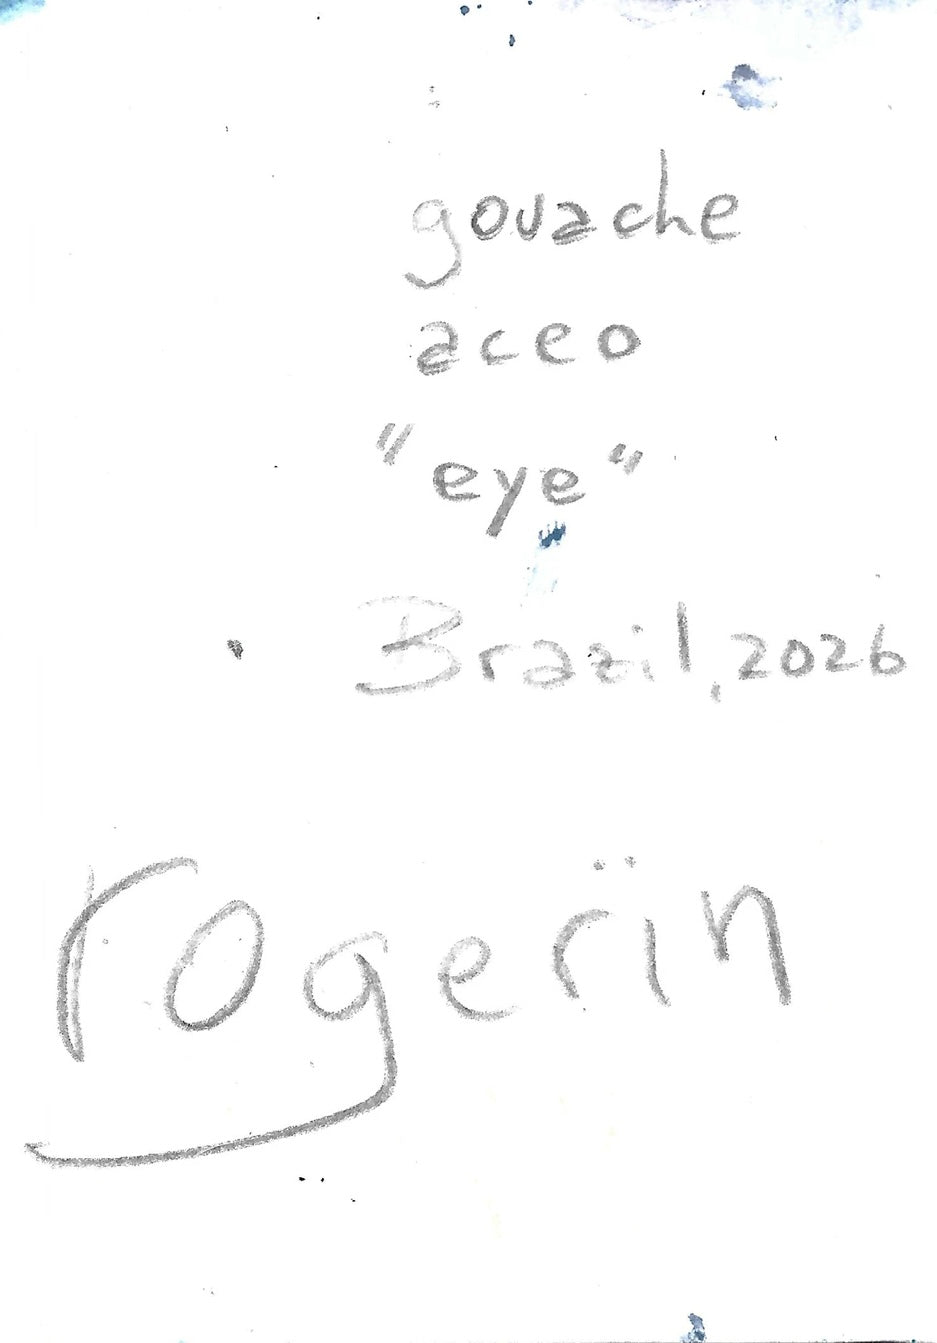 gouache
aceo
"eye"
Brazil, 2026
rogerïn